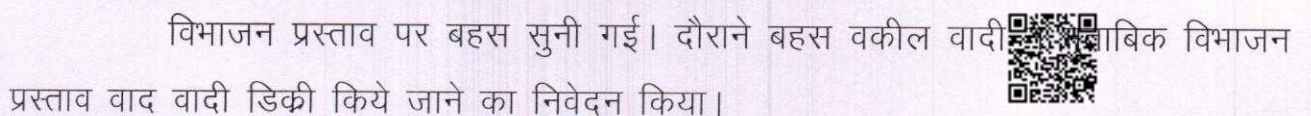 विभाजन प्रस्ताव पर बहस सुनी गई। दौराने बहस वकील वादी विभाजन
प्रस्ताव वाद वादी डिक्री किये जाने का निवेदन किया।